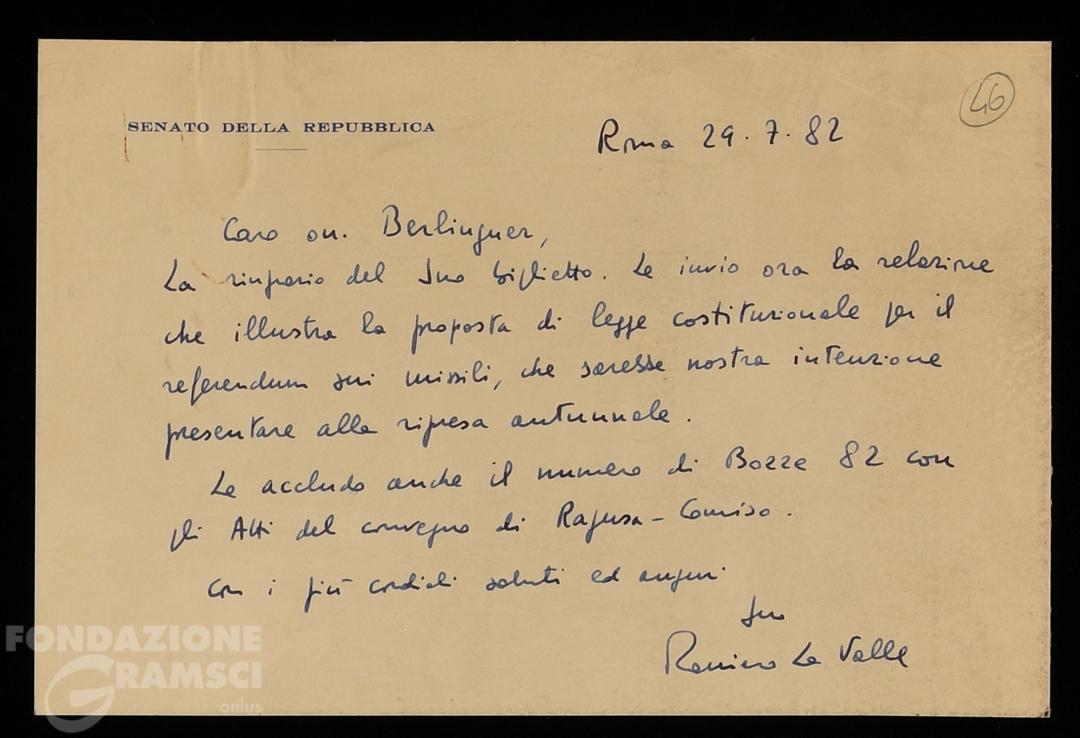 46
SENATO DELLA REPUBBLICA
Roma 29.7.82
Caro on. Berlinguer,
La ringrazio del Suo biglietto. Le invio ora la relazione
che illustra la proposta di legge costituzionale per il
referendum sui missili, che sarebbe nostra intenzione
presentare alla ripresa autunnale.
Le accludo anche il numero di Bozze 82 con
gli Atti del convegno di Ragusa-Comiso.
Con i più cordiali saluti ed auguri
Suo
Raniero La Valle
FONDAZIONE
GRAMSCI
onlus